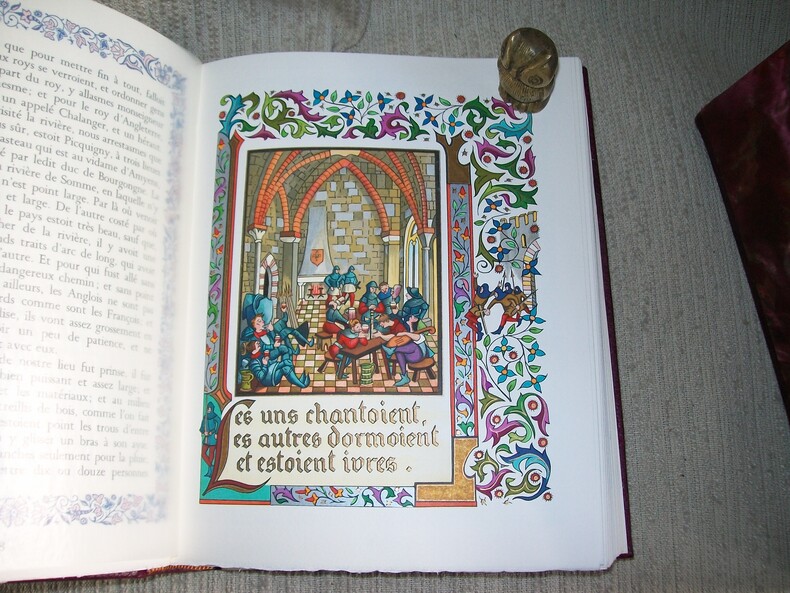 que pour mettre fin à tout, falloit
roys se verroient, et ordonner gens
part du roy, y allasmes monseigneur
esme; et pour le roy d'Angleterre
un appelé Chalanger, et un héraut
visité la rivière, nous arrestasmes que
sûr, estoit Picquigny, à trois lieues
asteau qui est au vidame d'Amyens
é par ledit duc de Bourgongne. La
rivière de Somme, en laquelle n'y
n'est point large. Par là où venoit
le pays estoit très beau, sauf que
cher de la rivière, il d'y avoit une
ds traits d'arc de long, qui avoit
d'autre. Et pour qui fust allé sans
dangereux chemin; et sans point
ailleurs, les Anglois ne sont pas
ords comme sont les François, et
dise, ils vont assez grossement en
oir un peu de patience, et ne
avec eux.
nostre lieu fut prinse, il fut
bien puissant et assez large, et
les matériaux; et au milieu
treillis de bois, comme l'on fait
pour les trous d'entre
y glisser un bras à son aise,
seulement pour la pluie,
dix ou douze personnes
Les uns chantoient,
Les autres dormoient
et estoient ivres.